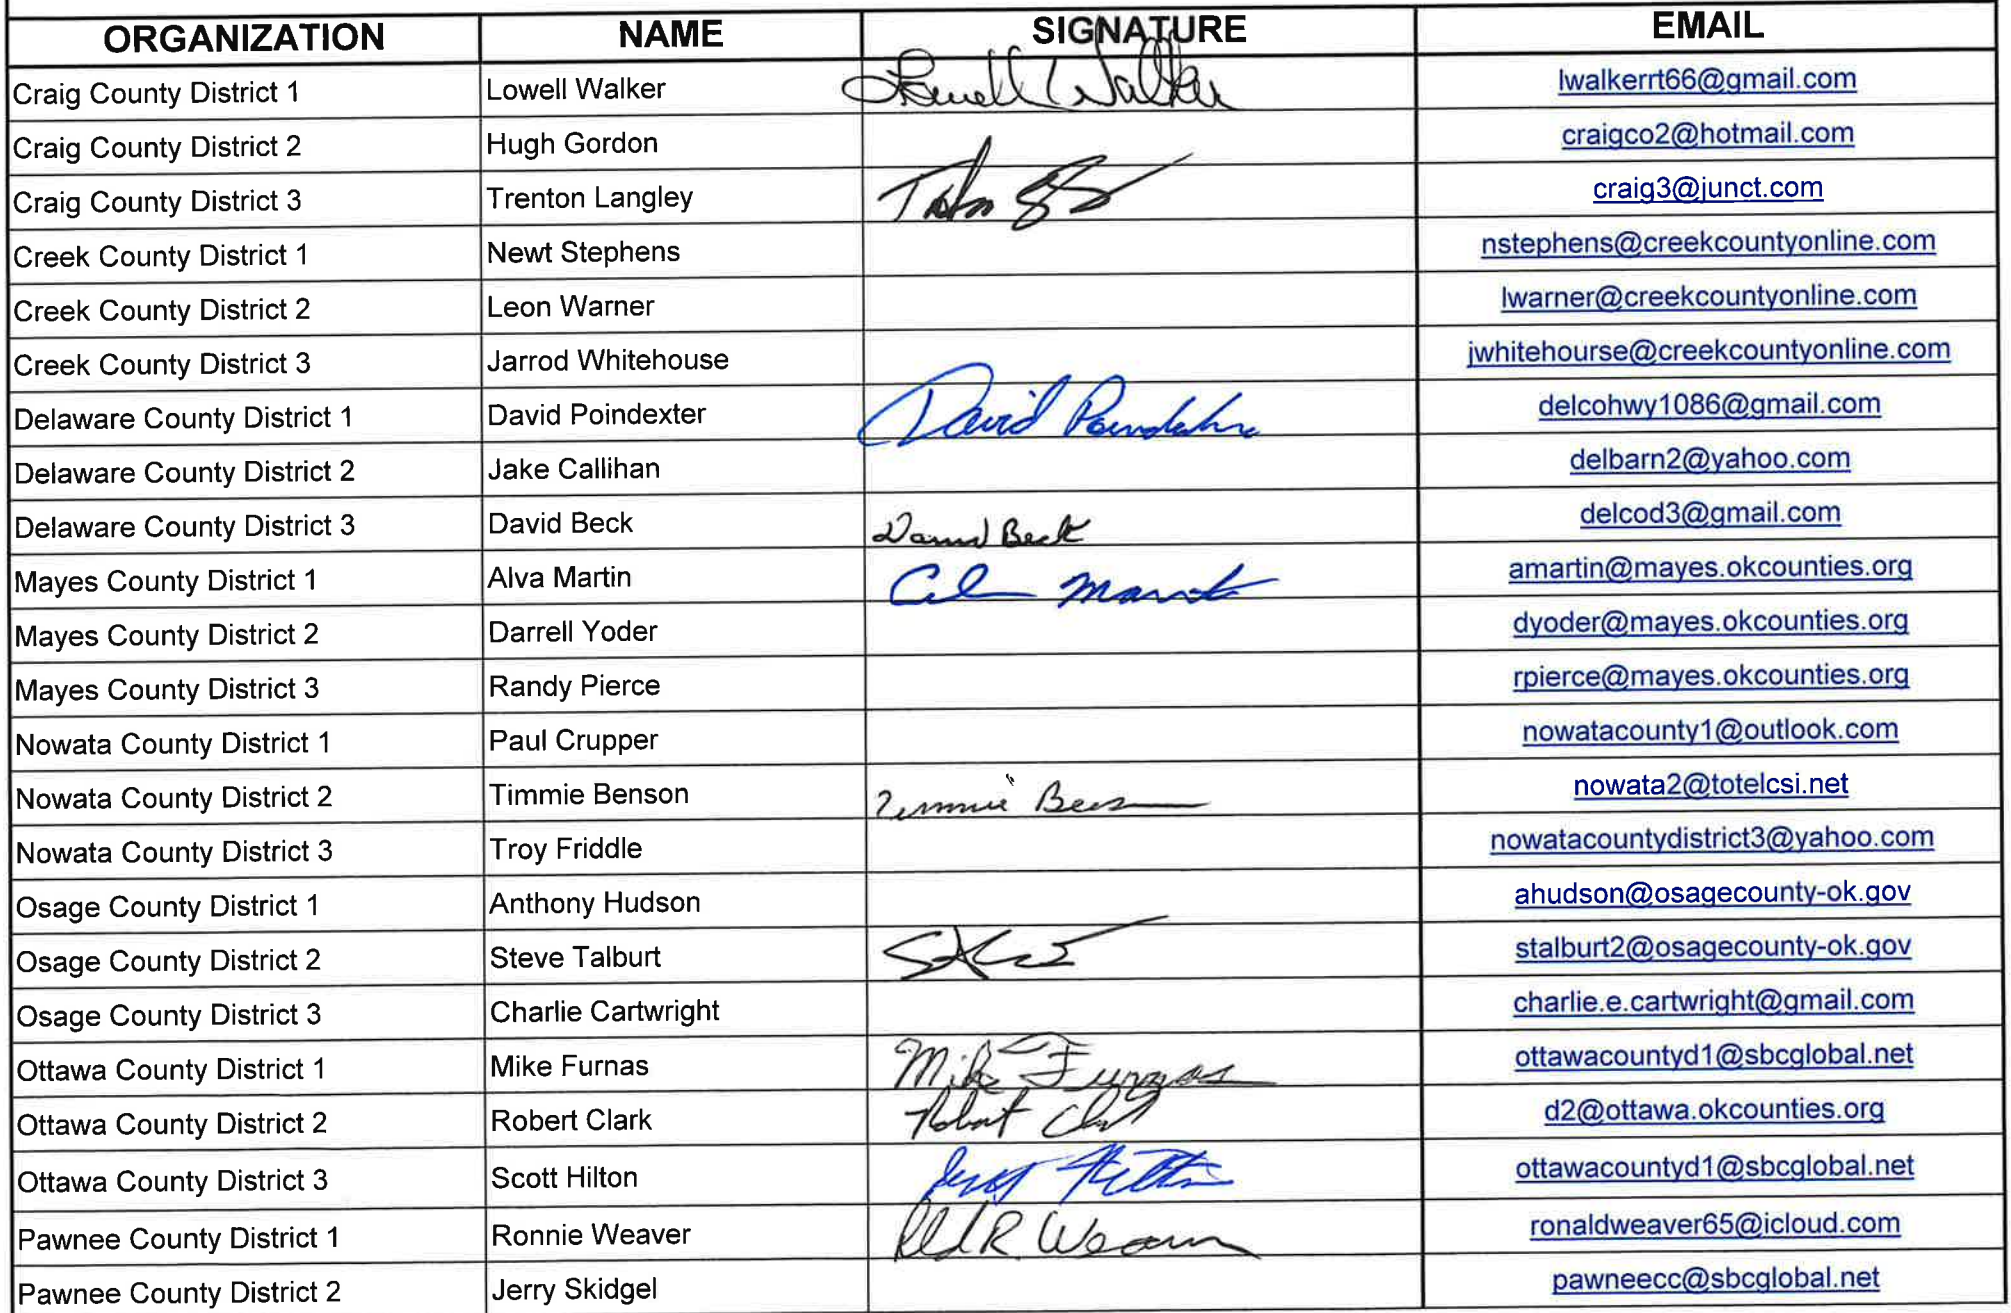 ORGANIZATION NAME SIGNATURE EMAIL
Craig County District 1 Lowell Walker Lowell Walker lwalkerrt66@gmail.com
Craig County District 2 Hugh Gordon craigco2@hotmail.com
Craig County District 3 Trenton Langley craig3@junct.com
Creek County District 1 Newt Stephens nstephens@creekcountyonline.com
Creek County District 2 Leon Warner lwarner@creekcountyonline.com
Creek County District 3 Jarrod Whitehouse jwhitehourse@creekcountyonline.com
Delaware County District 1 David Poindexter David Poindexter delcohwy1086@gmail.com
Delaware County District 2 Jake Callihan delbarn2@yahoo.com
Delaware County District 3 David Beck David Beck delcod3@gmail.com
Mayes County District 1 Alva Martin amartin@mayes.okcounties.org
Mayes County District 2 Darrell Yoder dyoder@mayes.okcounties.org
Mayes County District 3 Randy Pierce rpierce@mayes.okcounties.org
Nowata County District 1 Paul Crupper nowatacounty1@outlook.com
Nowata County District 2 Timmie Benson Timmie nowata2@totelcsi.net
Nowata County District 3 Troy Friddle nowatacountydistrict3@yahoo.com
Osage County District 1 Anthony Hudson ahudson@osagecounty-ok.gov
Osage County District 2 Steve Talburt stalburt2@osagecounty-ok.gov
Osage County District 3 Charlie Cartwright charlie.e.cartwright@gmail.com
Ottawa County District 1 Mike Furnas Mike Furnas ottawacountyd1@sbcglobal.net
Ottawa County District 2 Robert Clark Robert Clark d2@ottawa.okcounties.org
Ottawa County District 3 Scott Hilton ottawacountyd1@sbcglobal.net
Pawnee County District 1 Ronnie Weaver R Weaver ronaldweaver65@icloud.com
Pawnee County District 2 Jerry Skidgel pawneecc@sbcglobal.net